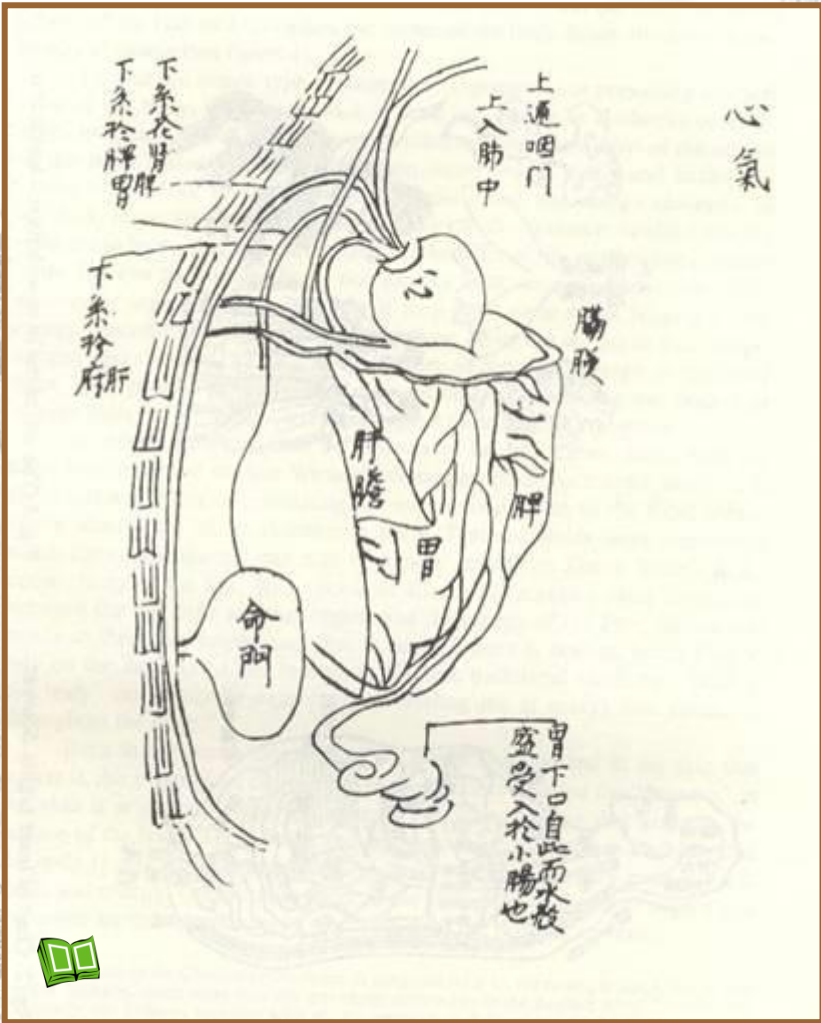 心氣
上通咽門
上入肺中
下系於腎脾
下系於脾胃
下系於
府肝
心
膈膜
肝膽
胃
脾
命門
胃下口自此而水穀
盛受入於小腸也